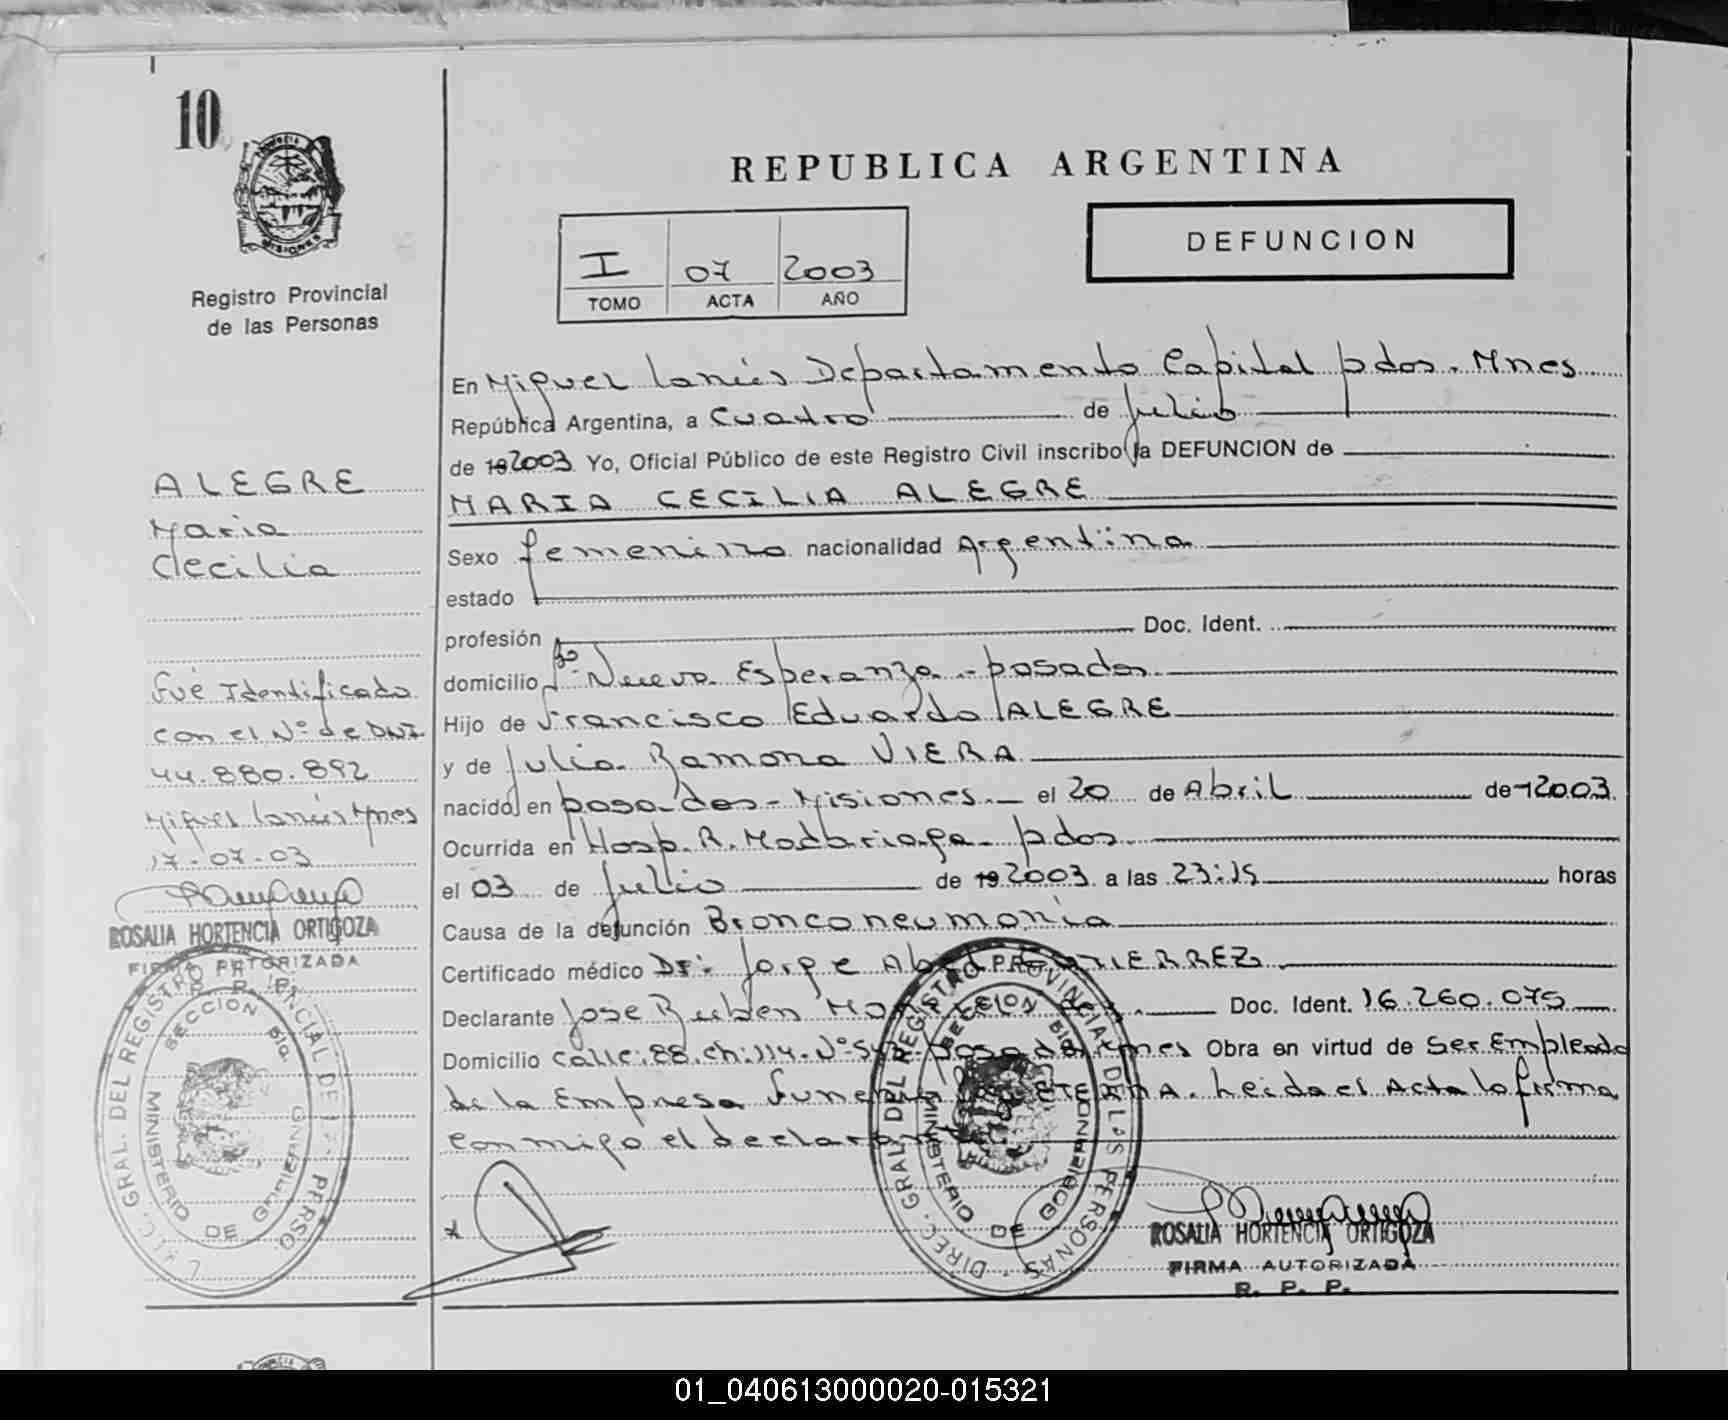 10
PROVINCIA
MISIONES
Registro Provincial
de las Personas
REPUBLICA ARGENTINA
I 07 2003
TOMO ACTA AÑO
DEFUNCION
ALEGRE
Maria
Cecilia
Fué Identificado
con el Nº de DNI
44.880.892
Miguel Lanús Mnes
17-07-03
ROSALIA HORTENCIA ORTIGOZA
FIRMA AUTORIZADA
R. P. P.
En Miguel Lanús Departamento Capital pdos. Mnes
República Argentina, a Cuatro de julio
de 19 2003 Yo, Oficial Público de este Registro Civil inscribo la DEFUNCION de
MARIA CECILIA ALEGRE
Sexo femenino nacionalidad Argentina
estado
profesión Doc. Ident.
domicilio Bº Nueva Esperanza - posadas
Hijo de Francisco Eduardo ALEGRE
y de Julia Ramona VIERA
nacido en posadas - Misiones. el 20 de Abril de 1 2003
Ocurrida en Hosp. R. Madariaga - pdos.
el 03 de julio de 19 2003 a las 23:15 horas
Causa de la defunción Bronconeumonia
Certificado médico Dr: Jorge GUTIERREZ
Declarante Jose Ruben Doc. Ident. 16.260.075
Domicilio Calle: 88. ch: 114. Nº posadas Mnes Obra en virtud de Ser Empleado
de la Empresa funebre ETERNA. Leida el Acta lo firma
conmigo el declarante
ROSALIA HORTENCIA ORTIGOZA
FIRMA AUTORIZADA
R. P. P.
DIREC. GRAL. DEL REGISTRO PROVINCIAL DE LAS PERSONAS
MINISTERIO DE GOBIERNO
01_040613000020-015321